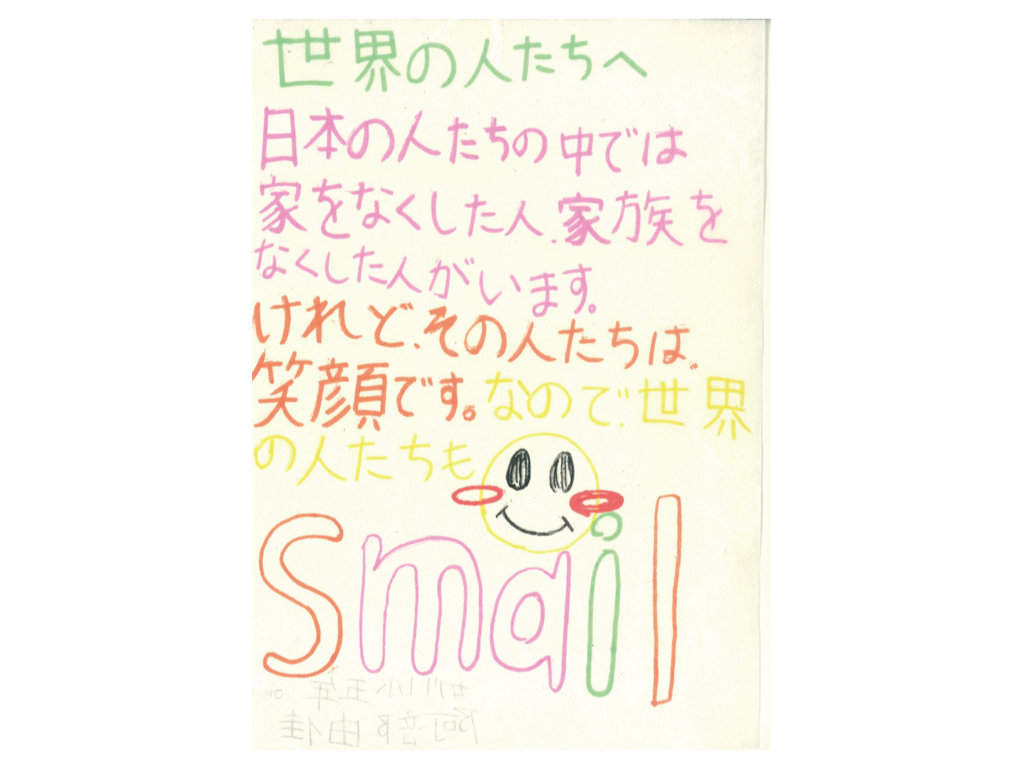 世界の人たちへ
日本の人たちの中では
家をなくした人、家族を
なくした人がいます。
けれど、その人たちは、
笑顔です。なので、世界
の人たちも
smail
小五年
阿部由佳